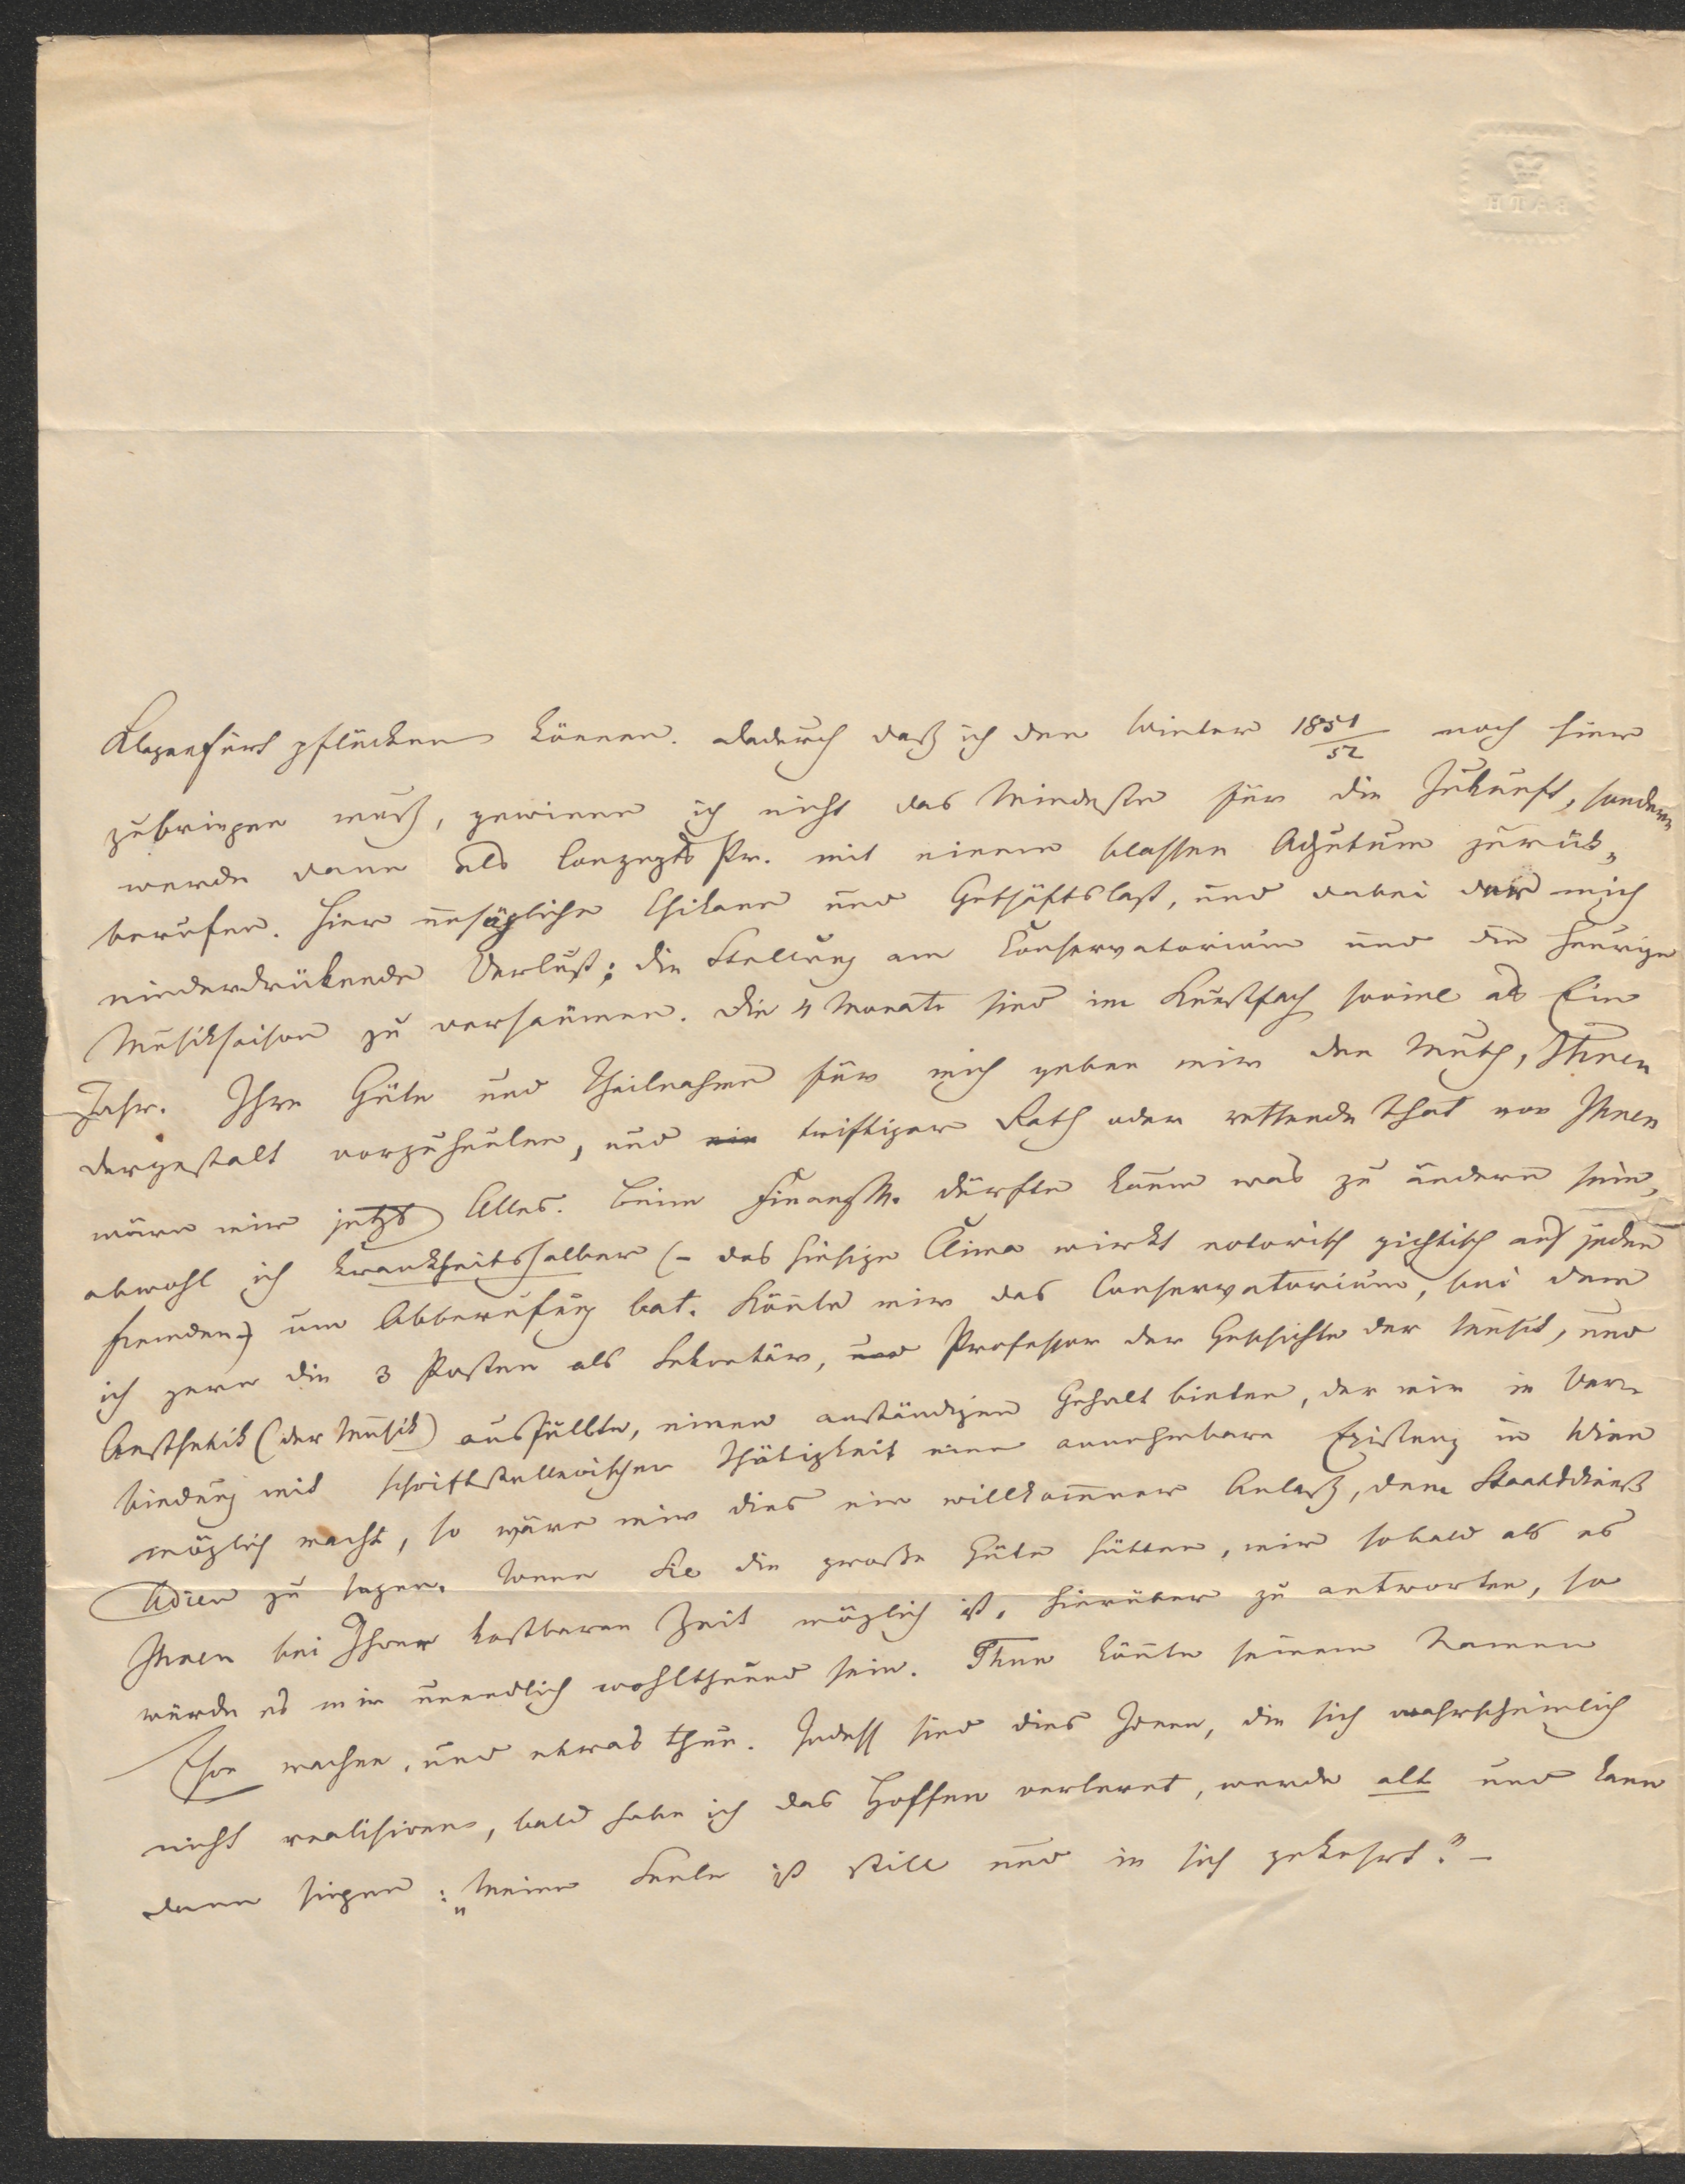 BATH
Klagenfurt pflücken können. Dadurch daß ich den Winter 1851/52 noch hier
zubringen muß, gewinne ich nicht das Mindeste für die Zukunft, sondern
werde dann als Conzepts Pr. mit einem blassen Adjutum zurük„
berufen. Hier unsägliche Chikane und Geschäftslast, und dabei der mich
niederdrükende Verlust; die Stellung am Conservatorium und die heurige
Musiksaison zu versäumen. Die 4 Monate sind im Kunstfach soviel als Ein
Jahr. Ihre Güte und Theilnahme für mich geben mir den Muth, Ihnen
dergestalt vorzuheulen, und ein triftiger Rath oder rettende That von Ihnen
wäre mir jetzt Alles. Beim FinanzM. dürfte kaum was zu ändern sein,
obwohl ich krankheitshalber (– das hiesige Clima wirkt notorisch gichtisch auf jeden
Fremden –) um Abberufung bat. Könnte mir das Conservatorium, bei dem
ich gern die 3 Posten als Sekretär, und Professor der Geschichte der Musik, und
Aesthetik (der Musik) ausfüllte, einen anständigen Gehalt bieten, der mir in Ver„
bindung mit schriftstellerischer Thätigkeit eine annehmbare Existenz in Wien
möglich macht, so wäre mir dies ein willkommner Anlaß, dem Staatsdienst
Adieu zu sagen. Wenn Sie die große Güte hätten, mir sobald als es
Ihnen bei Ihrer kostbaren Zeit möglich ist, hierüber zu antworten, so
würde es mir unendlich wohlthuend sein. Thun könnte seinem Namen
Ehre machen, und etwas thun. Indeß sind dies Ideen, die sich wahrscheinlich
nicht realisiren, bald habe ich das Hoffen verlernt, werde alt und kann
dann singen: „Meine Seele ist still und in sich gekehrt." –